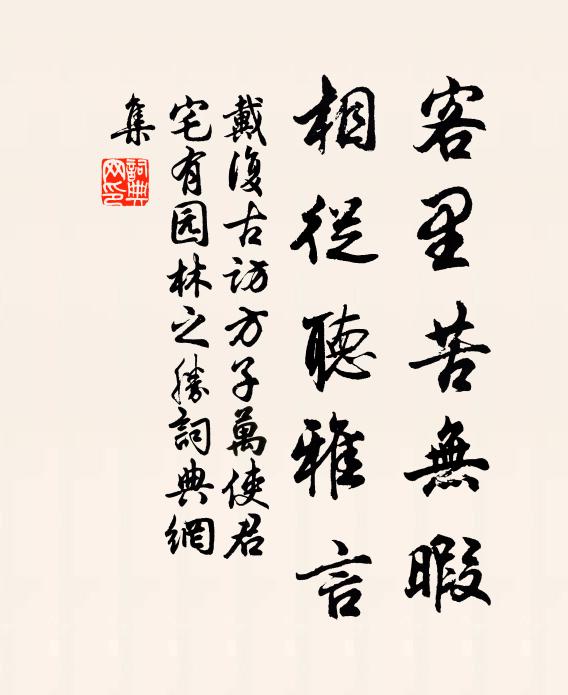 客里苦無暇
相從聽雅言
戴復古訪方子萬使君
宅有园林之勝詞典網
集
詞典
网印